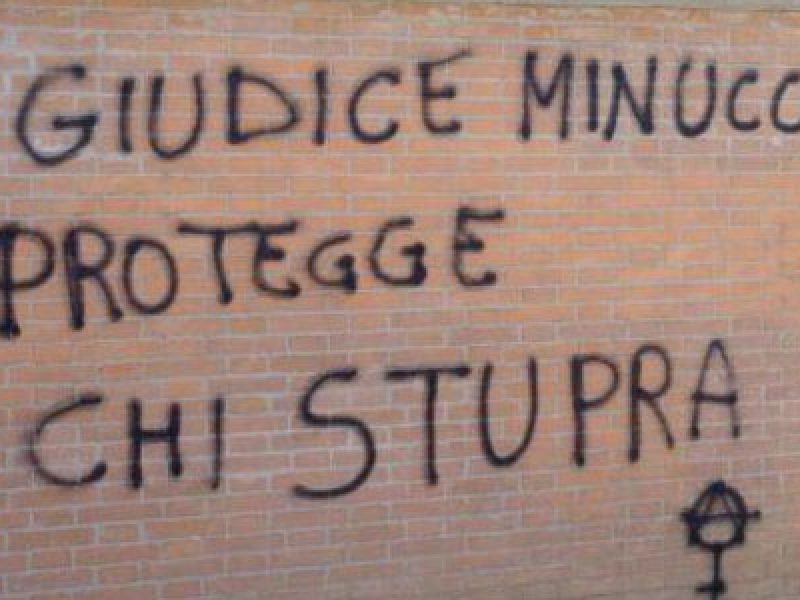 GIUDICE MINUCC
PROTEGGE
CHI STUPRA